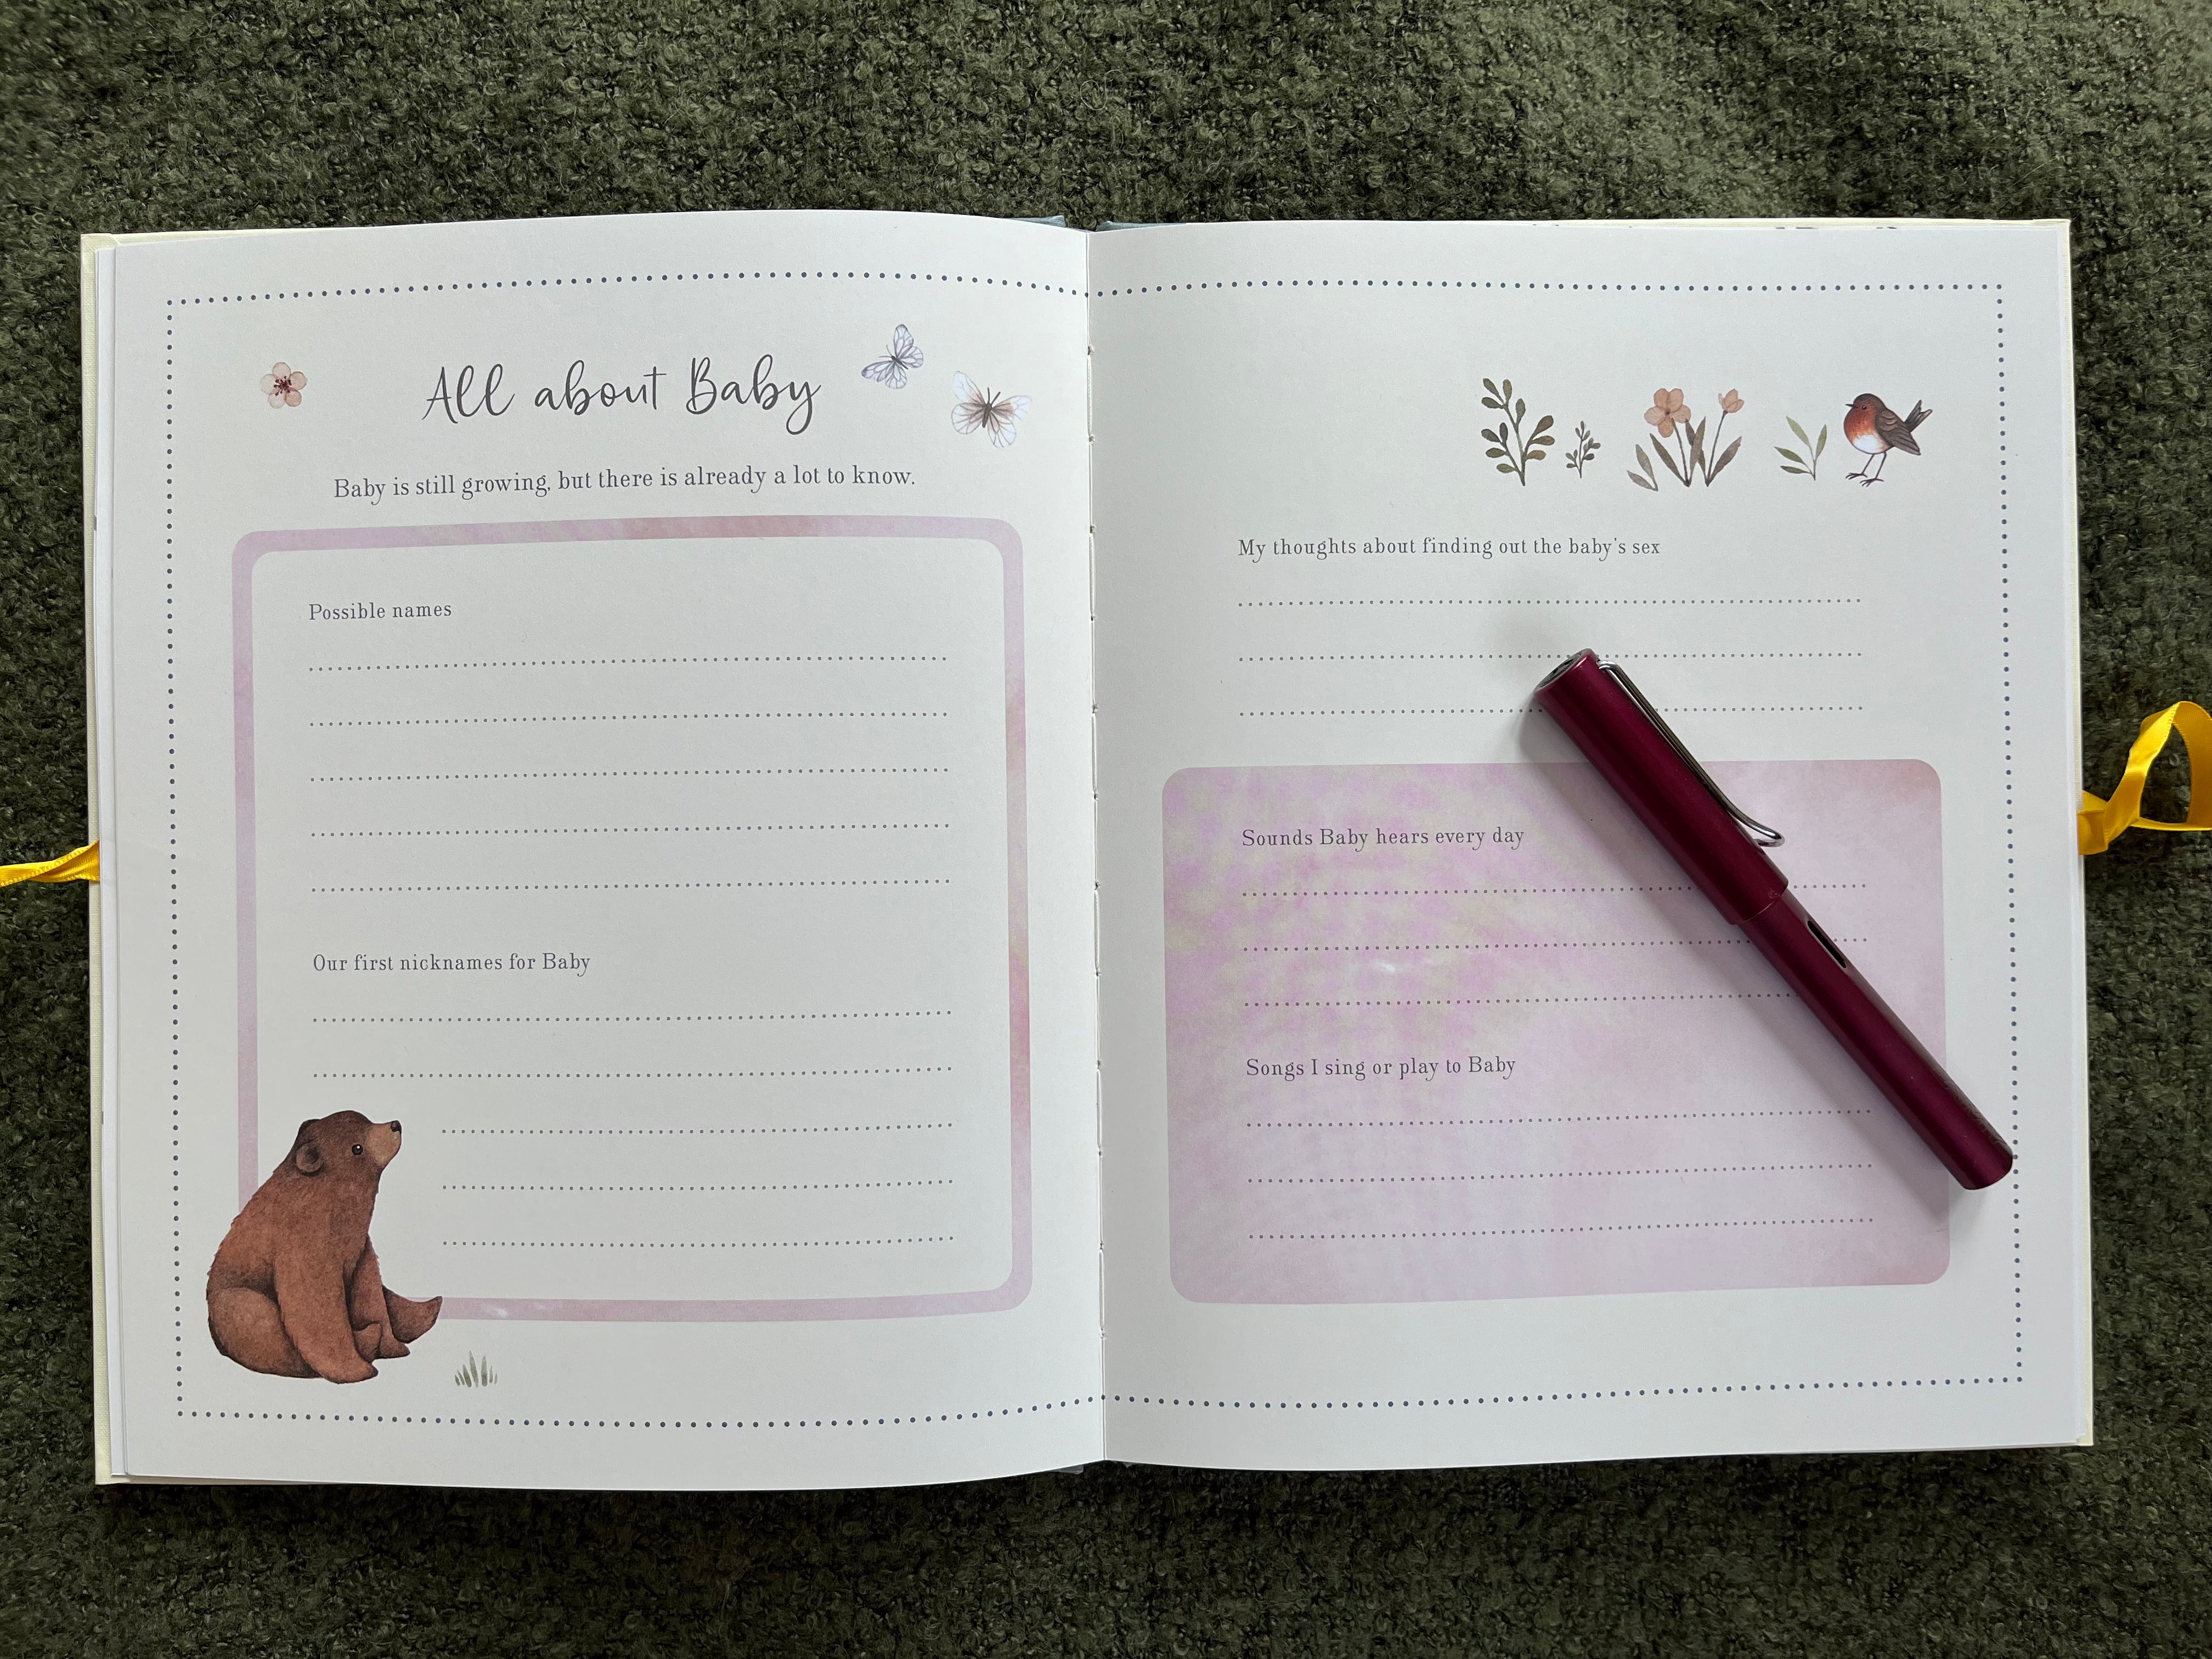 All about Baby
Baby is still growing, but there is already a lot to know.
Possible names
Our first nicknames for Baby
My thoughts about finding out the baby's sex
Sounds Baby hears every day
Songs I sing or play to Baby